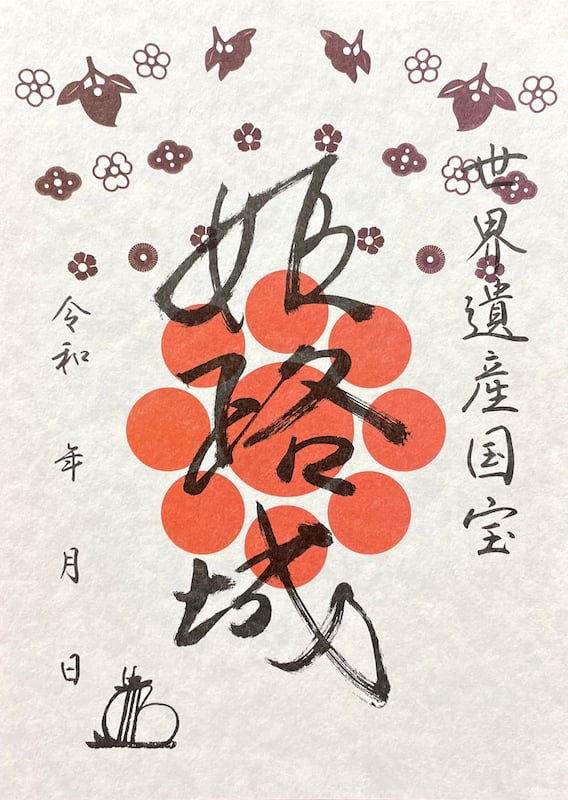 世界遺産国宝
姫路城
令和 年 月 日